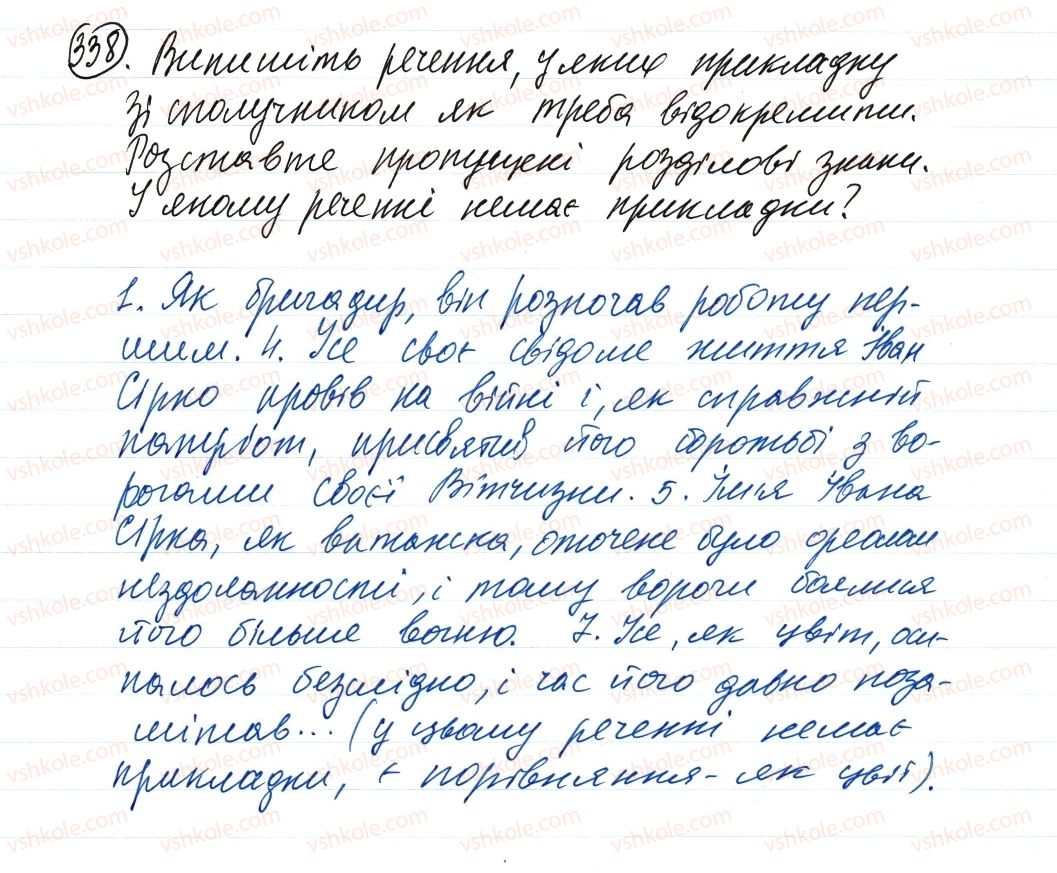 338. Випишіть речення, у яких прикладку
зі сполучником як треба відокремити.
Розставте пропущені розділові знаки.
У якому реченні немає прикладки?
1. Як бригадир, він розпочав роботу пер-
шим. 4. Усе своє свідоме життя Іван
Сірко провів на війні і, як справжній
патріот, присвятив його боротьбі з во-
рогами своєї Вітчизни. 5. Ім'я Івана
Сірка, як ватажка, оточене було ореолом
нездоланності, і тому вороги боялися
його більше вогню. 7. Усе, як цвіт, оси-
палось безслідно, і час його давно поза-
мітав... (у цьому реченні немає
прикладки, є порівняння - як цвіт).